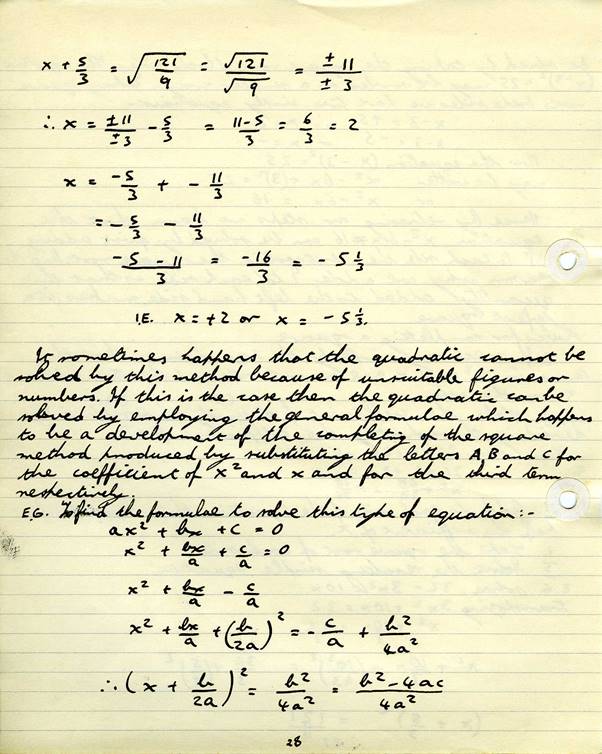 x + 5/3 = √(121/9) = √121/√9 = ± 11/± 3
∴ x = ± 11/± 3 - 5/3 = 11-5/3 = 6/3 = 2
x = -5/3 + - 11/3
= - 5/3 - 11/3
-5 - 11/3 = -16/3 = - 5 1/3
I.E. x = +2 or x = - 5 1/3.
It sometimes happens that the quadratic cannot be
solved by this method because of unsuitable figures or
numbers. If this is the case then the quadratic can be
soleved by employing the general formulae which happens
to be a development of the completing of the square
method produced by substituting the letters A, B and C for
the coefficient of x² and x and for the third term
respectively.
E.G. To find the formulae to solve this type of equation:-
ax² + bx + c = 0
x² + bx/a + c/a = 0
x² + bx/a - c/a
x² + bx/a + (b/2a)² = - c/a + b²/4a²
∴ (x + b/2a)² = b²/4a² = b² - 4ac/4a²
28